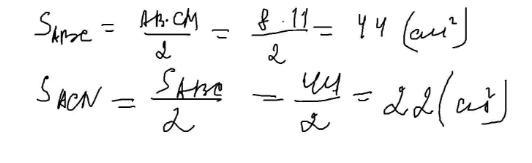 S_ABC = AB·CM / 2 = 8·11 / 2 = 44 (см²)
S_ACN = S_ABC / 2 = 44 / 2 = 22 (см²)